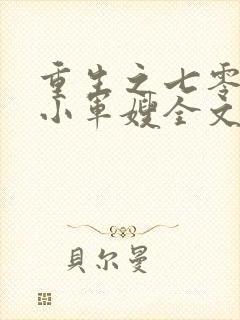 重生之七零
小军嫂全文
貝尔曼